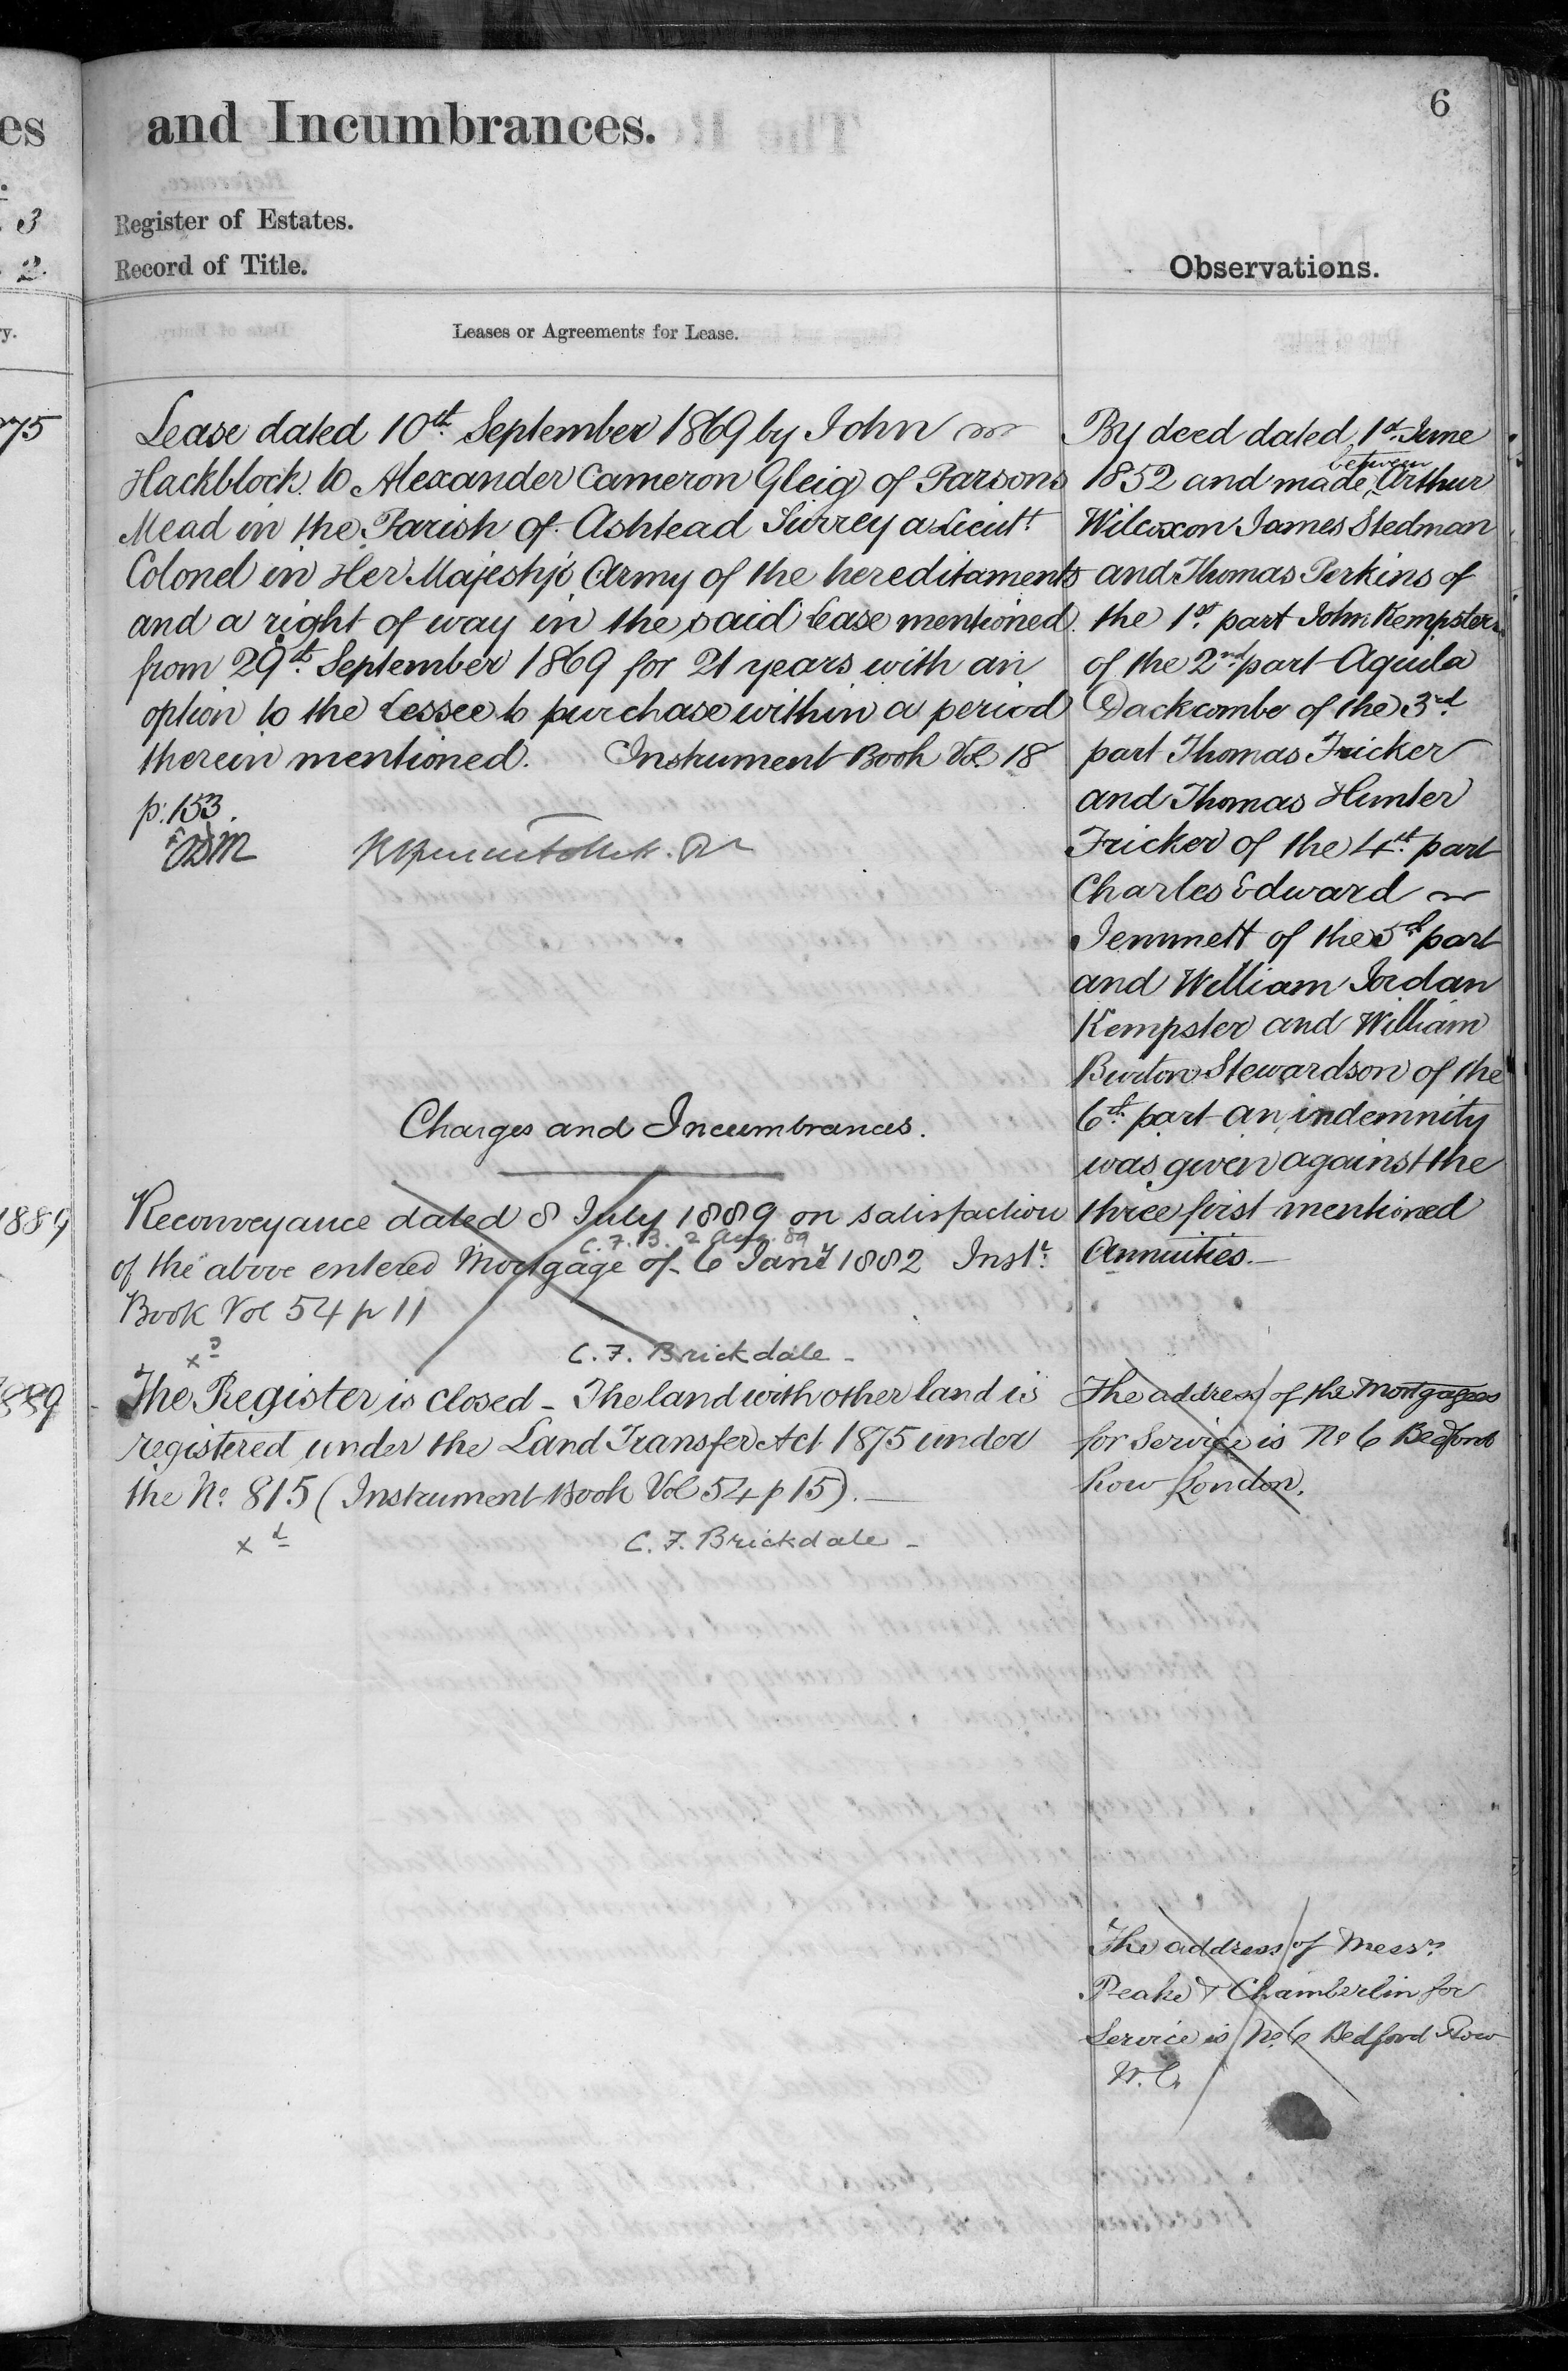 es
and Incumbrances.
6
3
Register of Estates.
2
Record of Title.
Observations.
y.
Leases or Agreements for Lease.
75
Lease dated 10th September 1869 by John
Hackblock to Alexander Cameron Gleig of Parsons
Mead in the Parish of Ashtead Surrey a Lieutt
Colonel in Her Majesty's Army of the hereditaments
and a right of way in the said Lease mentioned
from 29th September 1869 for 21 years with an
option to the Lessee to purchase within a period
therein mentioned. Instrument Book Vol 18
p. 153.
Charges and Incumbrances.
1889
Reconveyance dated 8 July 1889 on satisfaction
C.F.B. 2 Aug. 89
of the above entered Mortgage of 6 Jany 1882 Instt
Book Vol 54 p 11
C. F. Brickdale
1889
The Register is closed - The land with other land is
registered under the Land Transfer Act 1875 under
the No. 815 (Instrument Book Vol 54 p 15).
C. F. Brickdale
By deed dated 1st June
1852 and made between Arthur
Wilcoxon James Stedman
and Thomas Perkins of
the 1st part John Kempster
of the 2nd part Aquila
Dackombe of the 3rd
part Thomas Fricker
and Thomas Hunter
Fricker of the 4th part
Charles Edward
Jemmett of the 5th part
and William Jordan
Kempster and William
Burton Stewardson of the
6th part an indemnity
was given against the
three first mentioned
Annuities.
The address of the Mortgagees
for Service is No 6 Bedford
Row London.
The address of Messrs
Peake & Chamberlin for
Service is No. 6 Bedford Row
W.C.